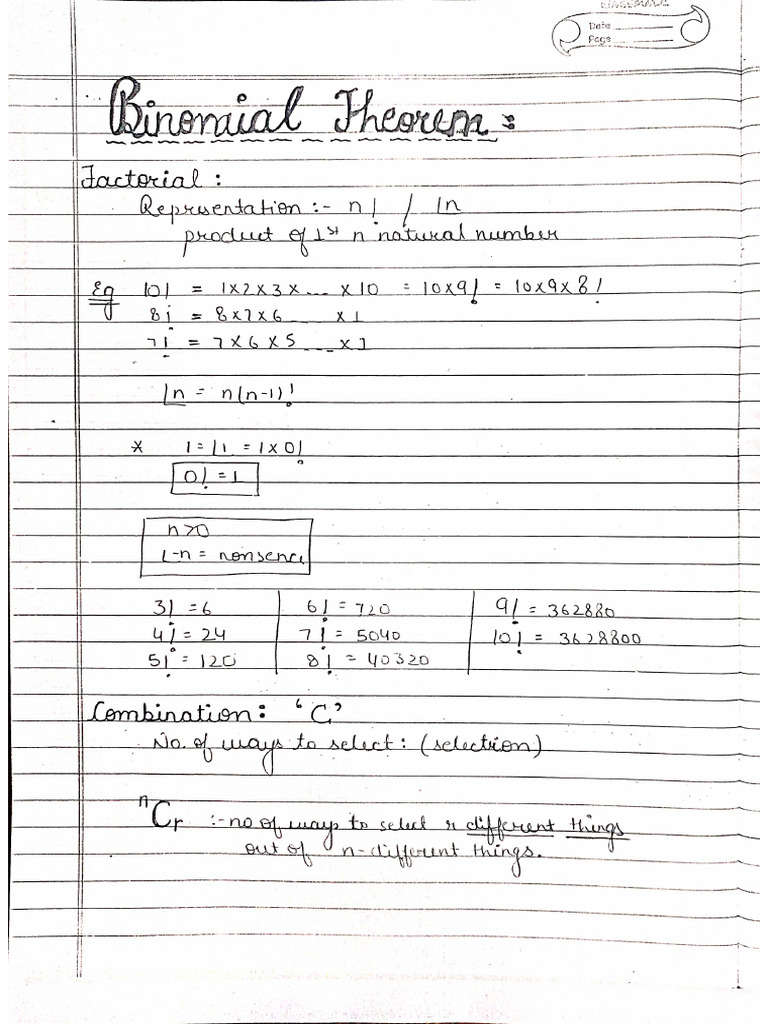 Date
Page
Binomial Theorem :
Factorial :
Representation :- n! / |n
product of 1st n natural number
Eg 10! = 1×2×3×... ×10 = 10×9! = 10×9×8!
8! = 8×7×6... ×1
7! = 7×6×5...×1
|n = n(n-1)!
* 1 = |1 = 1×0!
0! = 1
n>0
|-n = nonsence
3! = 6 6! = 720 9! = 362880
4! = 24 7! = 5040 10! = 3628800
5! = 120 8! = 40320
Combination : 'C'
No. of ways to select : (selection)
nCr :- no of ways to select r different things
out of n-different things.